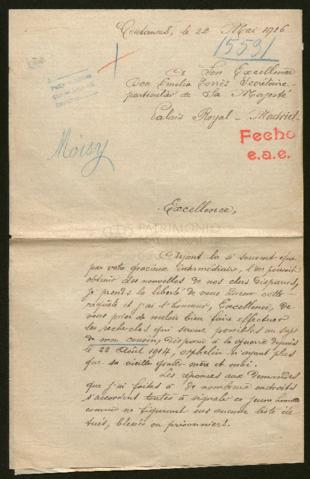 Coutances, le 22 Mai 1916
1553/
A Son Excellence
Don Emilio Torrès Secrétaire
particulier de Sa Majesté
Palais Royal - Madrid.
Moisy
Fecho
e.a.e.
Excellence,
PATRIMONIO
Ayant lu et souvent que
par votre gracieux intermédiaire, l'on pouvait
obtenir des nouvelles de nos chers disparus,
je prends la liberté de vous écrire cette
et j'ai l'honneur, Excellence, de
vous prier de vouloir bien faire effectuer
les recherches qui seront possibles au sujet
de mon cousin, disparu à la guerre depuis
le 22 Août 1914, orphelin n'ayant plus
que sa vieille grand-mère et moi.
Les réponses aux demandes
que j'ai faites à de nombreux endroits
s'accordent toutes à signaler ce jeune homme
comme ne figurant sur aucune liste de
tués, blessés ou prisonniers.